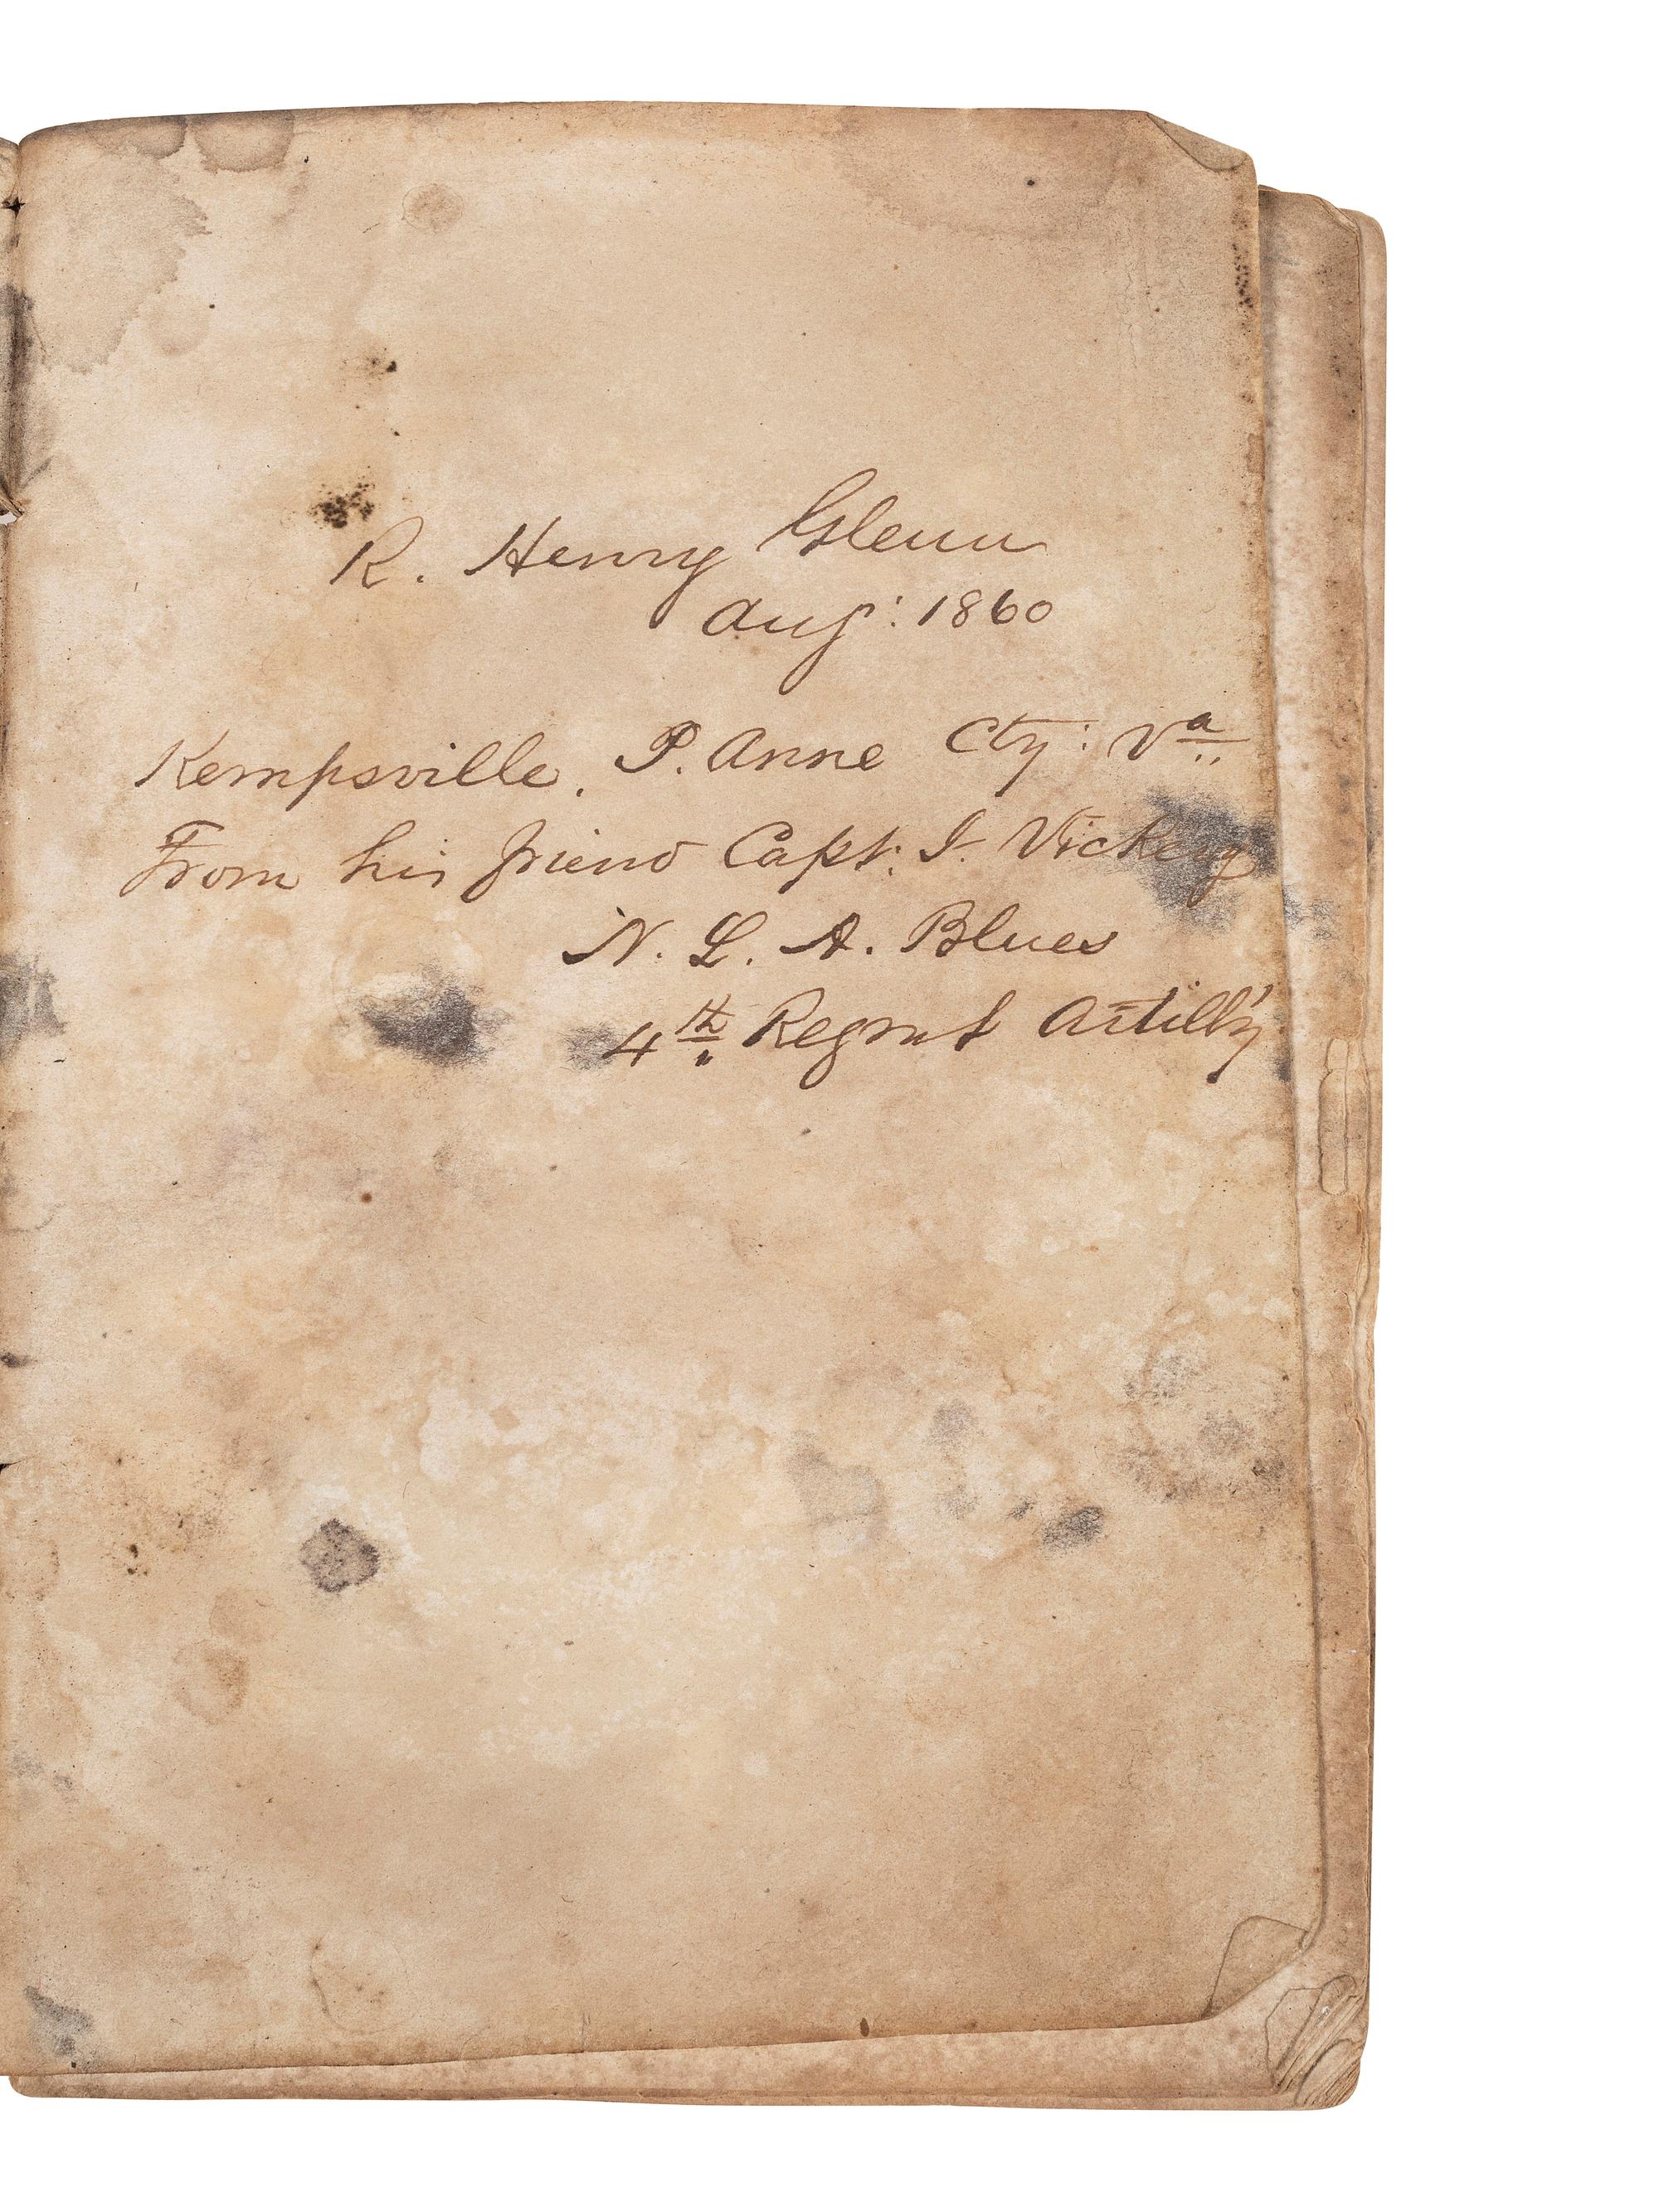 R. Henry Glenn
Aug: 1860
Kempsville. P. Anne Cty: Va
From his friend Capt. J. Vickery
N. L. A. Blues
4th Regmt Artill'y